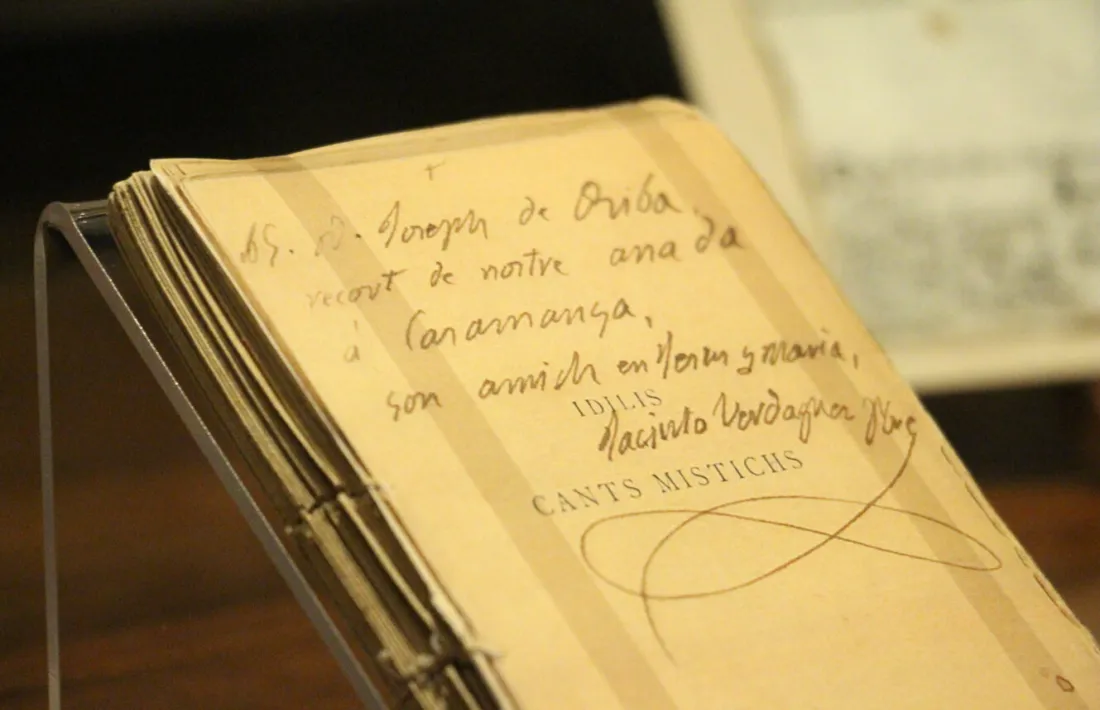 Al S. D. Joseph de Oriba,
recort de nostre anada
á Caramança,
son amich en Jesus y Maria,
IDILIS
Jacinto Verdaguer Pbre
CANTS MISTICHS